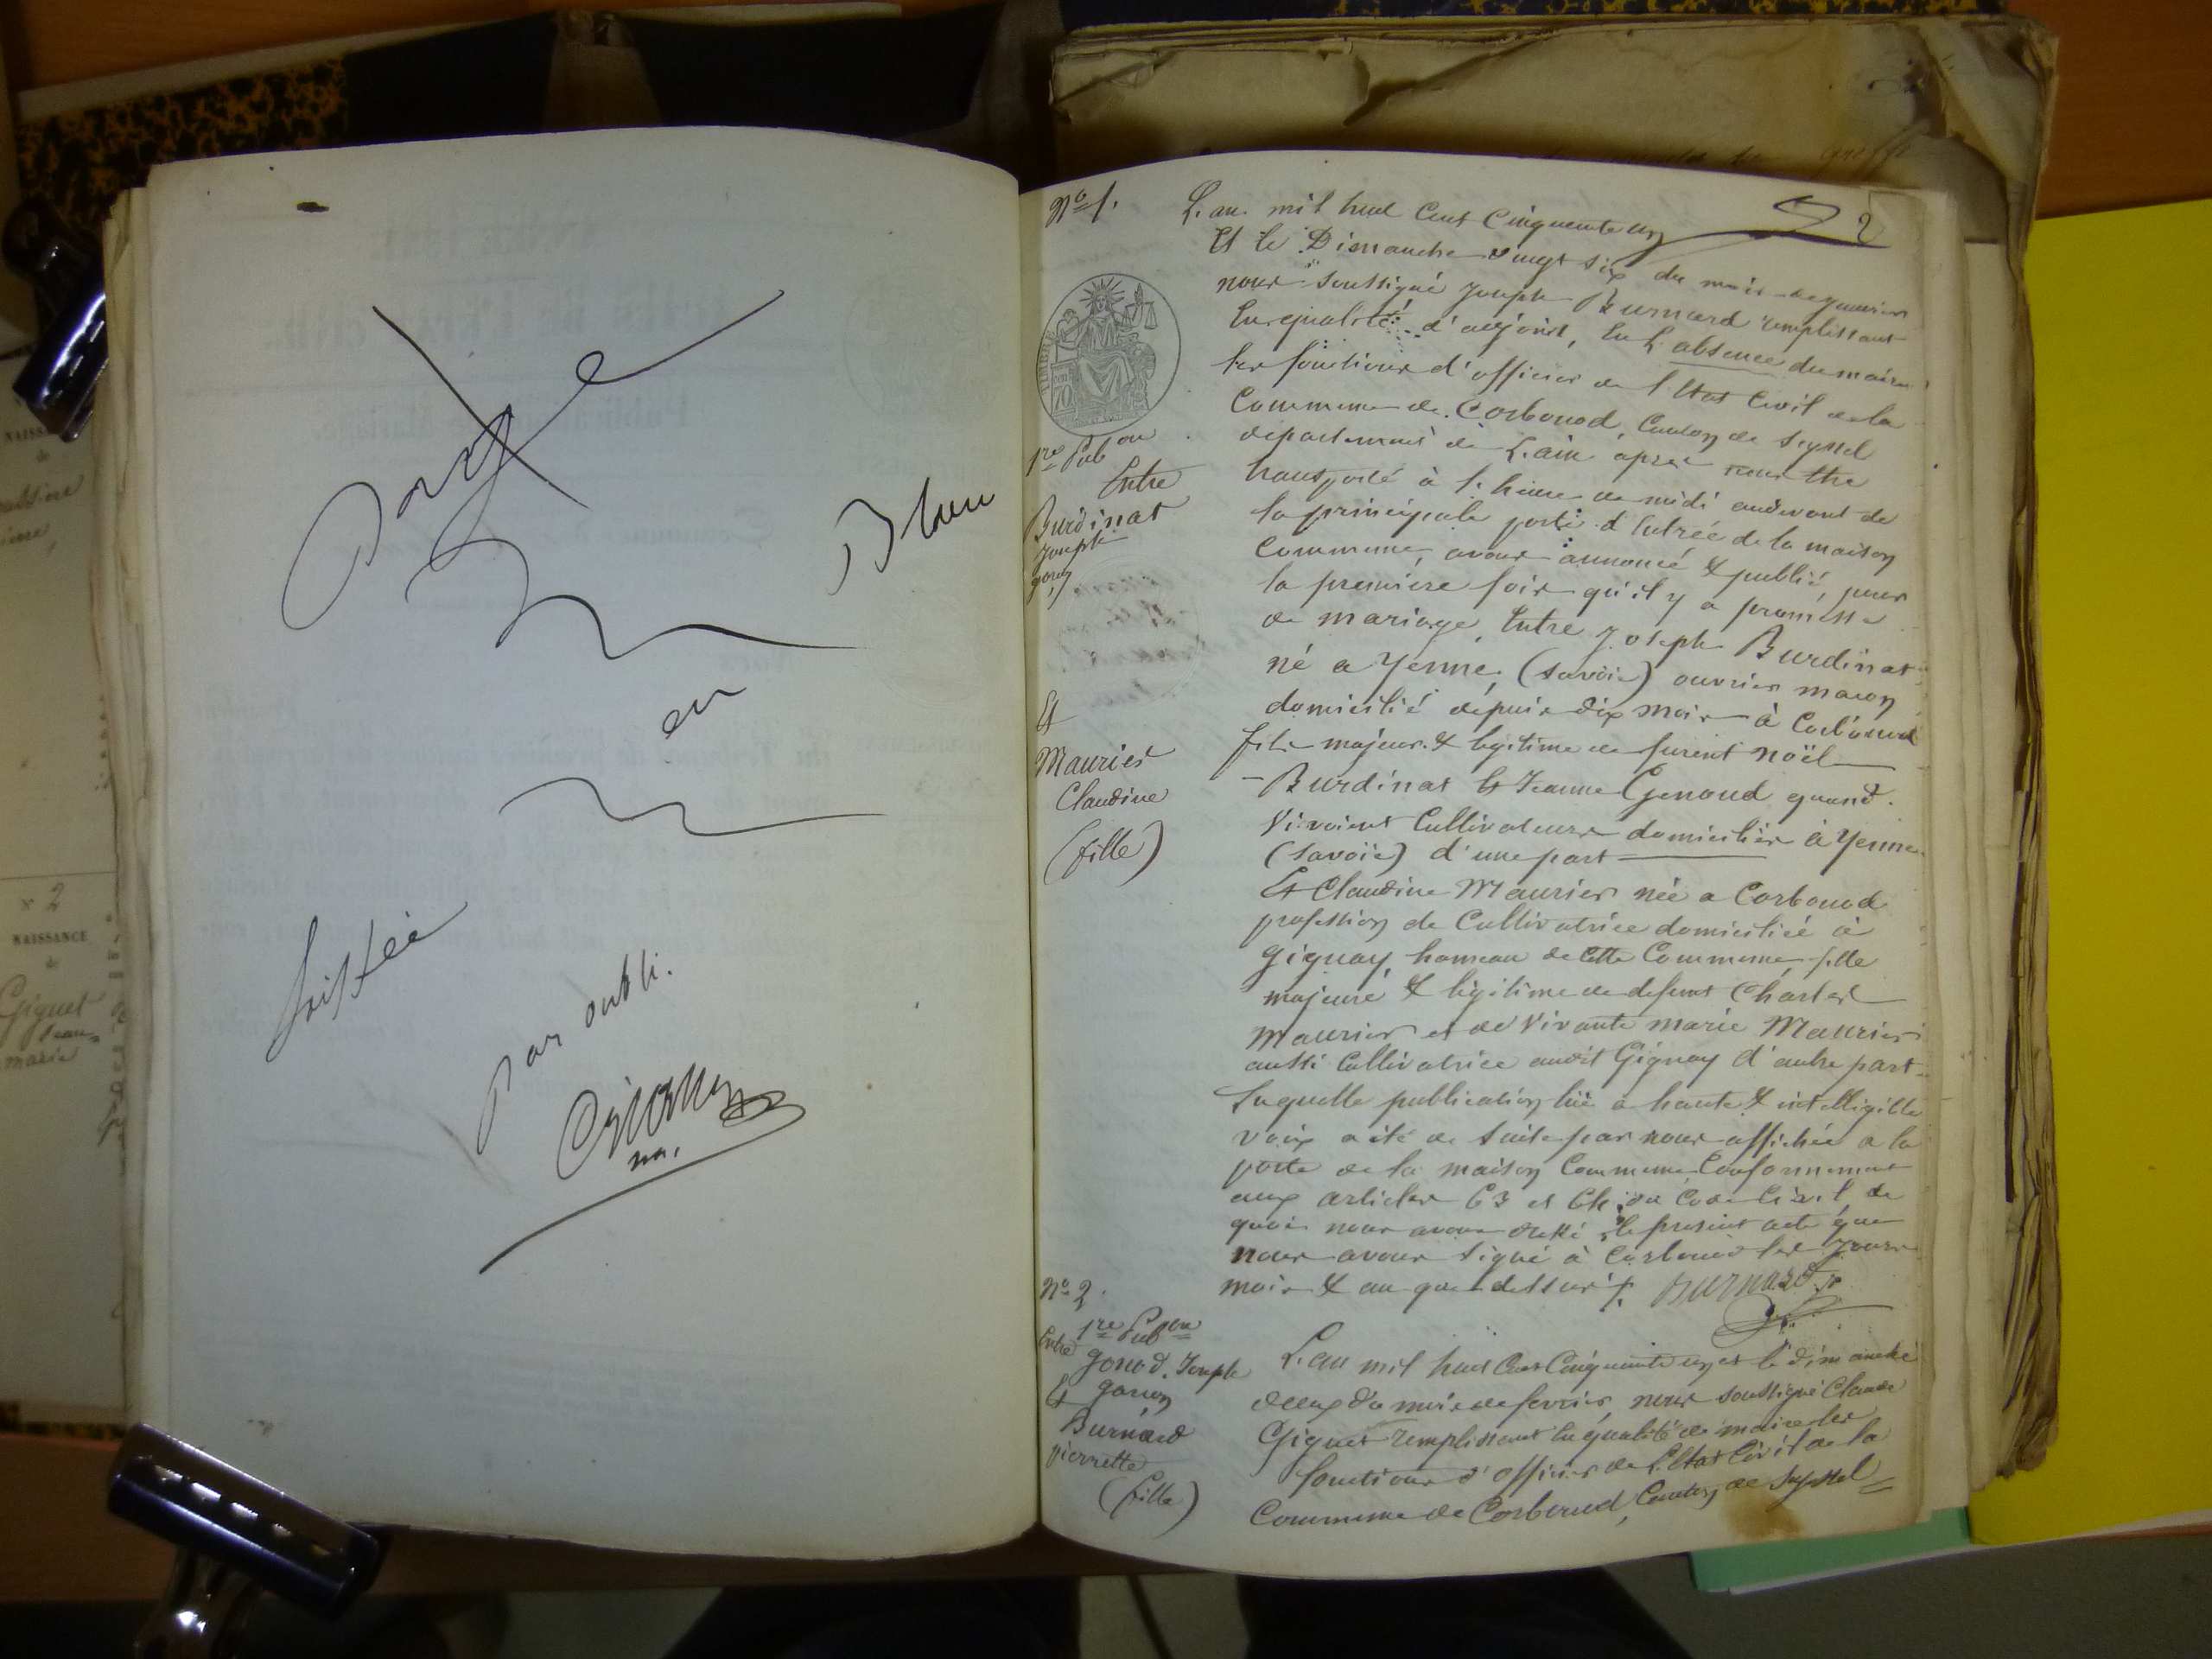 Page
en
Blanc
laissée
par oubli.
2
Nº 1.
1re Pubon
Entre
Burdinat
Joseph
garçon
Et
Maurier
Claudine
(fille)
L'an mil huit Cent Cinquante un
Et le Dimanche vingt six du mois de janvier
nous soussigné Joseph Burnard remplissant
En qualité d'adjoint, En l'absence du maire
les fonctions d'officier de l'Etat Civil de la
Commune de Corbonod, Canton de Seyssel
département de L'ain après nous être
transporté à l'heure de midi audevant de
la principale porte d'Entrée de la maison
Commune, avons annoncé & publié, pour
la première fois qu'il y a promesse
de mariage, Entre Joseph Burdinat
né a Yenne (Savoie) ouvrier maçon
domicilié depuis dix mois à Corbonod
fils majeur & légitime de furent Noël
Burdinat Et Jeanne Genoud quand
Vivoient Cultivateurs domiciliés à Yenne
(Savoie) d'une part
Et Claudine Maurier née a Corbonod
profession de Cultivatrice domiciliée à
Gignay, hameau de Cette Commune fille
majeure & légitime de defunt Charles
Maurier et de Vivante marie Maurier
aussi Cultivatrice audit Gignay d'autre part
Laquelle publication lue a haute & intelligible
voix a été de suite par nous affichée a la
porte de la maison Commune Conformément
aux articles 63 et 64 du Code Civil, de
quoi nous avons dressé le présent acte que
nous avons signé à Corbonod les jour
mois & an que dessus. Burnard
Nº 2
1re Pubon
Entre
gonod. Joseph
Et garçon
Burnard
pierrette
(fille)
L'an mil huit Cent Cinquante un et le dimanche
deux du mois de fevrier, nous soussigné Claude
Giguet remplissant En qualité de maire les
fonctions d'officier de L'Etat Civil de la
Commune de Corbonod, Canton de Seyssel
Nº 2
NAISSANCE
de
Giguet
Jean-
marie